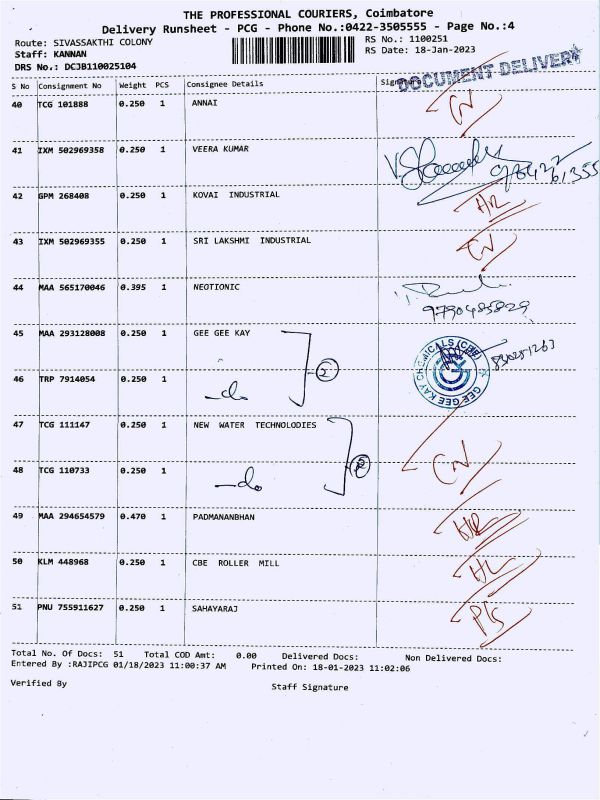 THE PROFESSIONAL COURIERS, Coimbatore
Delivery Runsheet - PCG - Phone No.:0422-3505555 - Page No.:4
Route: SIVASSAKTHI COLONY RS No.: 1100251
Staff: KANNAN RS Date: 18-Jan-2023
DRS No.: DCJB110025104
DOCUMENT DELIVERY
S No Consignment No Weight PCS Consignee Details Signature
40 TCG 101888 0.250 1 ANNAI
41 IXM 502969358 0.250 1 VEERA KUMAR
42 GPM 268408 0.250 1 KOVAI INDUSTRIAL
43 IXM 502969355 0.250 1 SRI LAKSHMI INDUSTRIAL
44 MAA 565170046 0.395 1 NEOTIONIC
9790485829
45 MAA 293128008 0.250 1 GEE GEE KAY
GEE GEE KAY CHEMICALS (CBE)
46 TRP 7914054 0.250 1
-do
47 TCG 111147 0.250 1 NEW WATER TECHNOLODIES
48 TCG 110733 0.250 1
-do
49 MAA 294654579 0.470 1 PADMANANBHAN
50 KLM 448968 0.250 1 CBE ROLLER MILL
51 PNU 755911627 0.250 1 SAHAYARAJ
Total No. Of Docs: 51 Total COD Amt: 0.00 Delivered Docs: Non Delivered Docs:
Entered By :RAJIPCG 01/18/2023 11:00:37 AM Printed On: 18-01-2023 11:02:06
Verified By Staff Signature